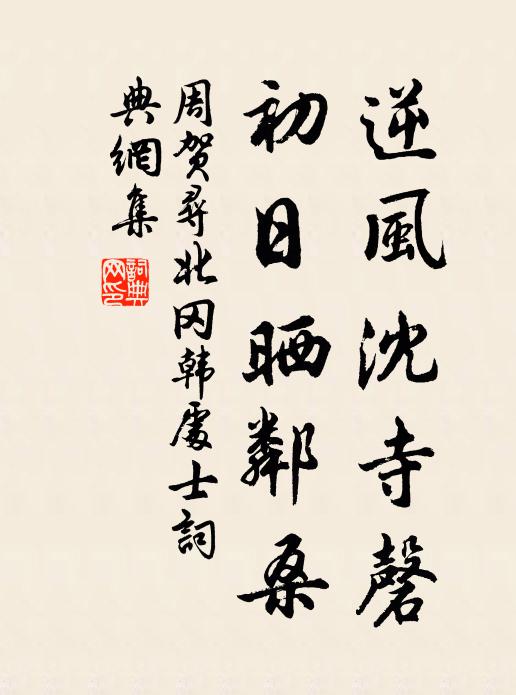 逆風沈寺磬
初日晒鄰桑
周賀尋北冈韩處士詞
典網集
詞典
网印